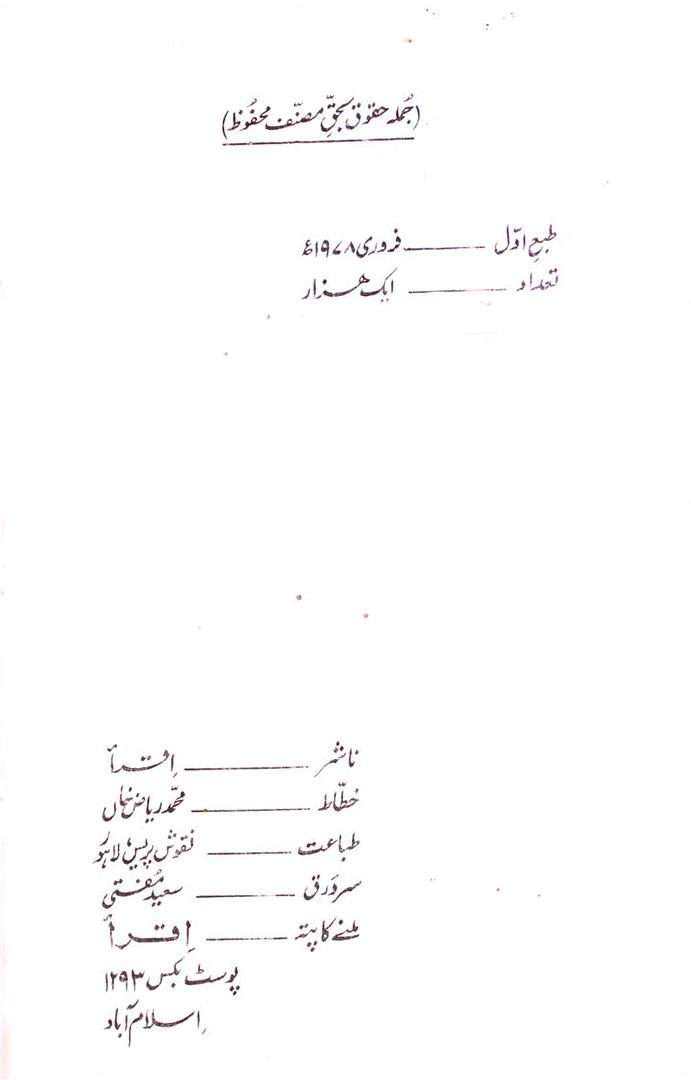 (جُملہ حقوق بحقِّ مصنّف محفُوظ)
طبعِ اوّل ——— فروری ۱۹۷۸ء
تعداد ——— ایک ہزار
ناشر ——— اِقرأ
خطّاط ——— محمّد ریاض خاں
طباعت ——— نقوش پریس، لاہور
سرورق ——— سعید مُفتی
ملنے کا پتہ ——— اِقرأ
پوسٹ بکس ۱۲۹۳
اِسلام آباد